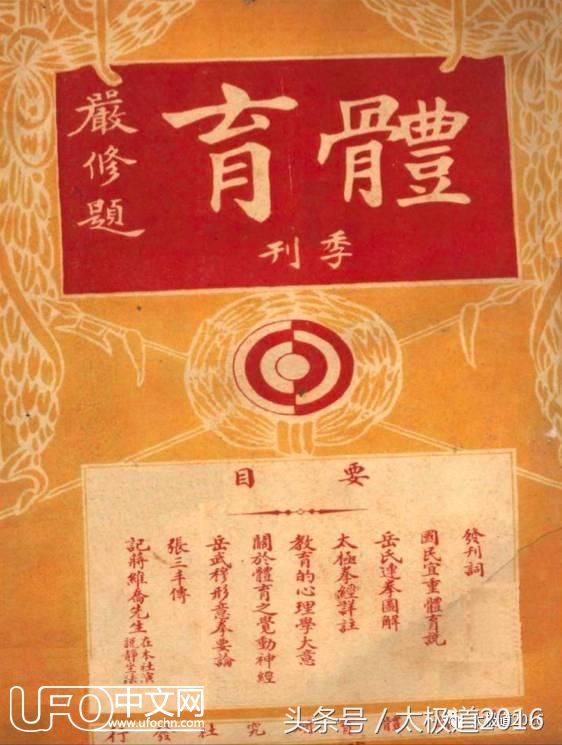 體育
季刊
嚴修題
要目
發刊詞
國民宜重體育說
岳氏連拳圖解
太極拳經詳註
教育的心理學大意
關於體育之覺動神經
岳武穆形意拳要論
張三丰傳
記蔣維喬先生在本社演說靜坐法
體究社發行
UFO中文网
www.ufochn.com
头条号 / 太极道2016